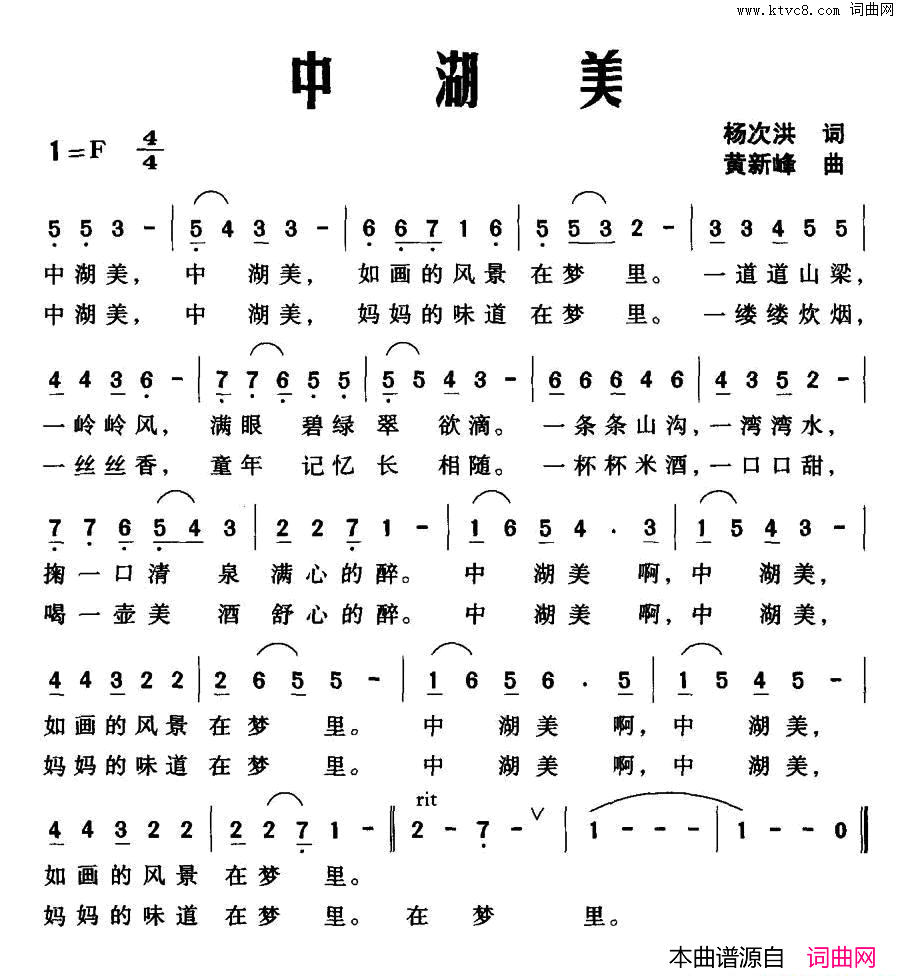 www.ktvc8.com 词曲网
中湖美
1=F 4/4
杨次洪 词
黄新峰 曲
5 5 3 - | 5 4 3 3 - | 6 6 7 1 6 | 5 5 3 2 - | 3 3 4 5 5 |
中湖美, 中 湖美, 如画的风景 在梦 里。 一道道山梁,
中湖美, 中 湖美, 妈妈的味道 在梦 里。 一缕缕炊烟,
4 4 3 6 - | 7 7 6 5 5 | 5 5 4 3 - | 6 6 6 4 6 | 4 3 5 2 - |
一岭岭风, 满眼 碧绿 翠 欲滴。 一条条山沟, 一湾湾水,
一丝丝香, 童年 记忆 长 相随。 一杯杯米酒, 一口口甜,
7 7 6 5 4 3 | 2 2 7 1 - | 1 6 5 4 . 3 | 1 5 4 3 - |
掬一口清 泉 满心的醉。 中 湖美 啊, 中 湖美,
喝一壶美 酒 舒心的醉。 中 湖美 啊, 中 湖美,
4 4 3 2 2 | 2 6 5 5 - | 1 6 5 6 . 5 | 1 5 4 5 - |
如画的风景 在梦 里。 中 湖美 啊, 中 湖美,
妈妈的味道 在梦 里。 中 湖美 啊, 中 湖美,
rit
4 4 3 2 2 | 2 2 7 1 - || 2 - 7 - ∨ | 1 - - - | 1 - - 0 ||
如画的风景 在梦 里。
妈妈的味道 在梦 里。 在 梦 里。
本曲谱源自 词曲网